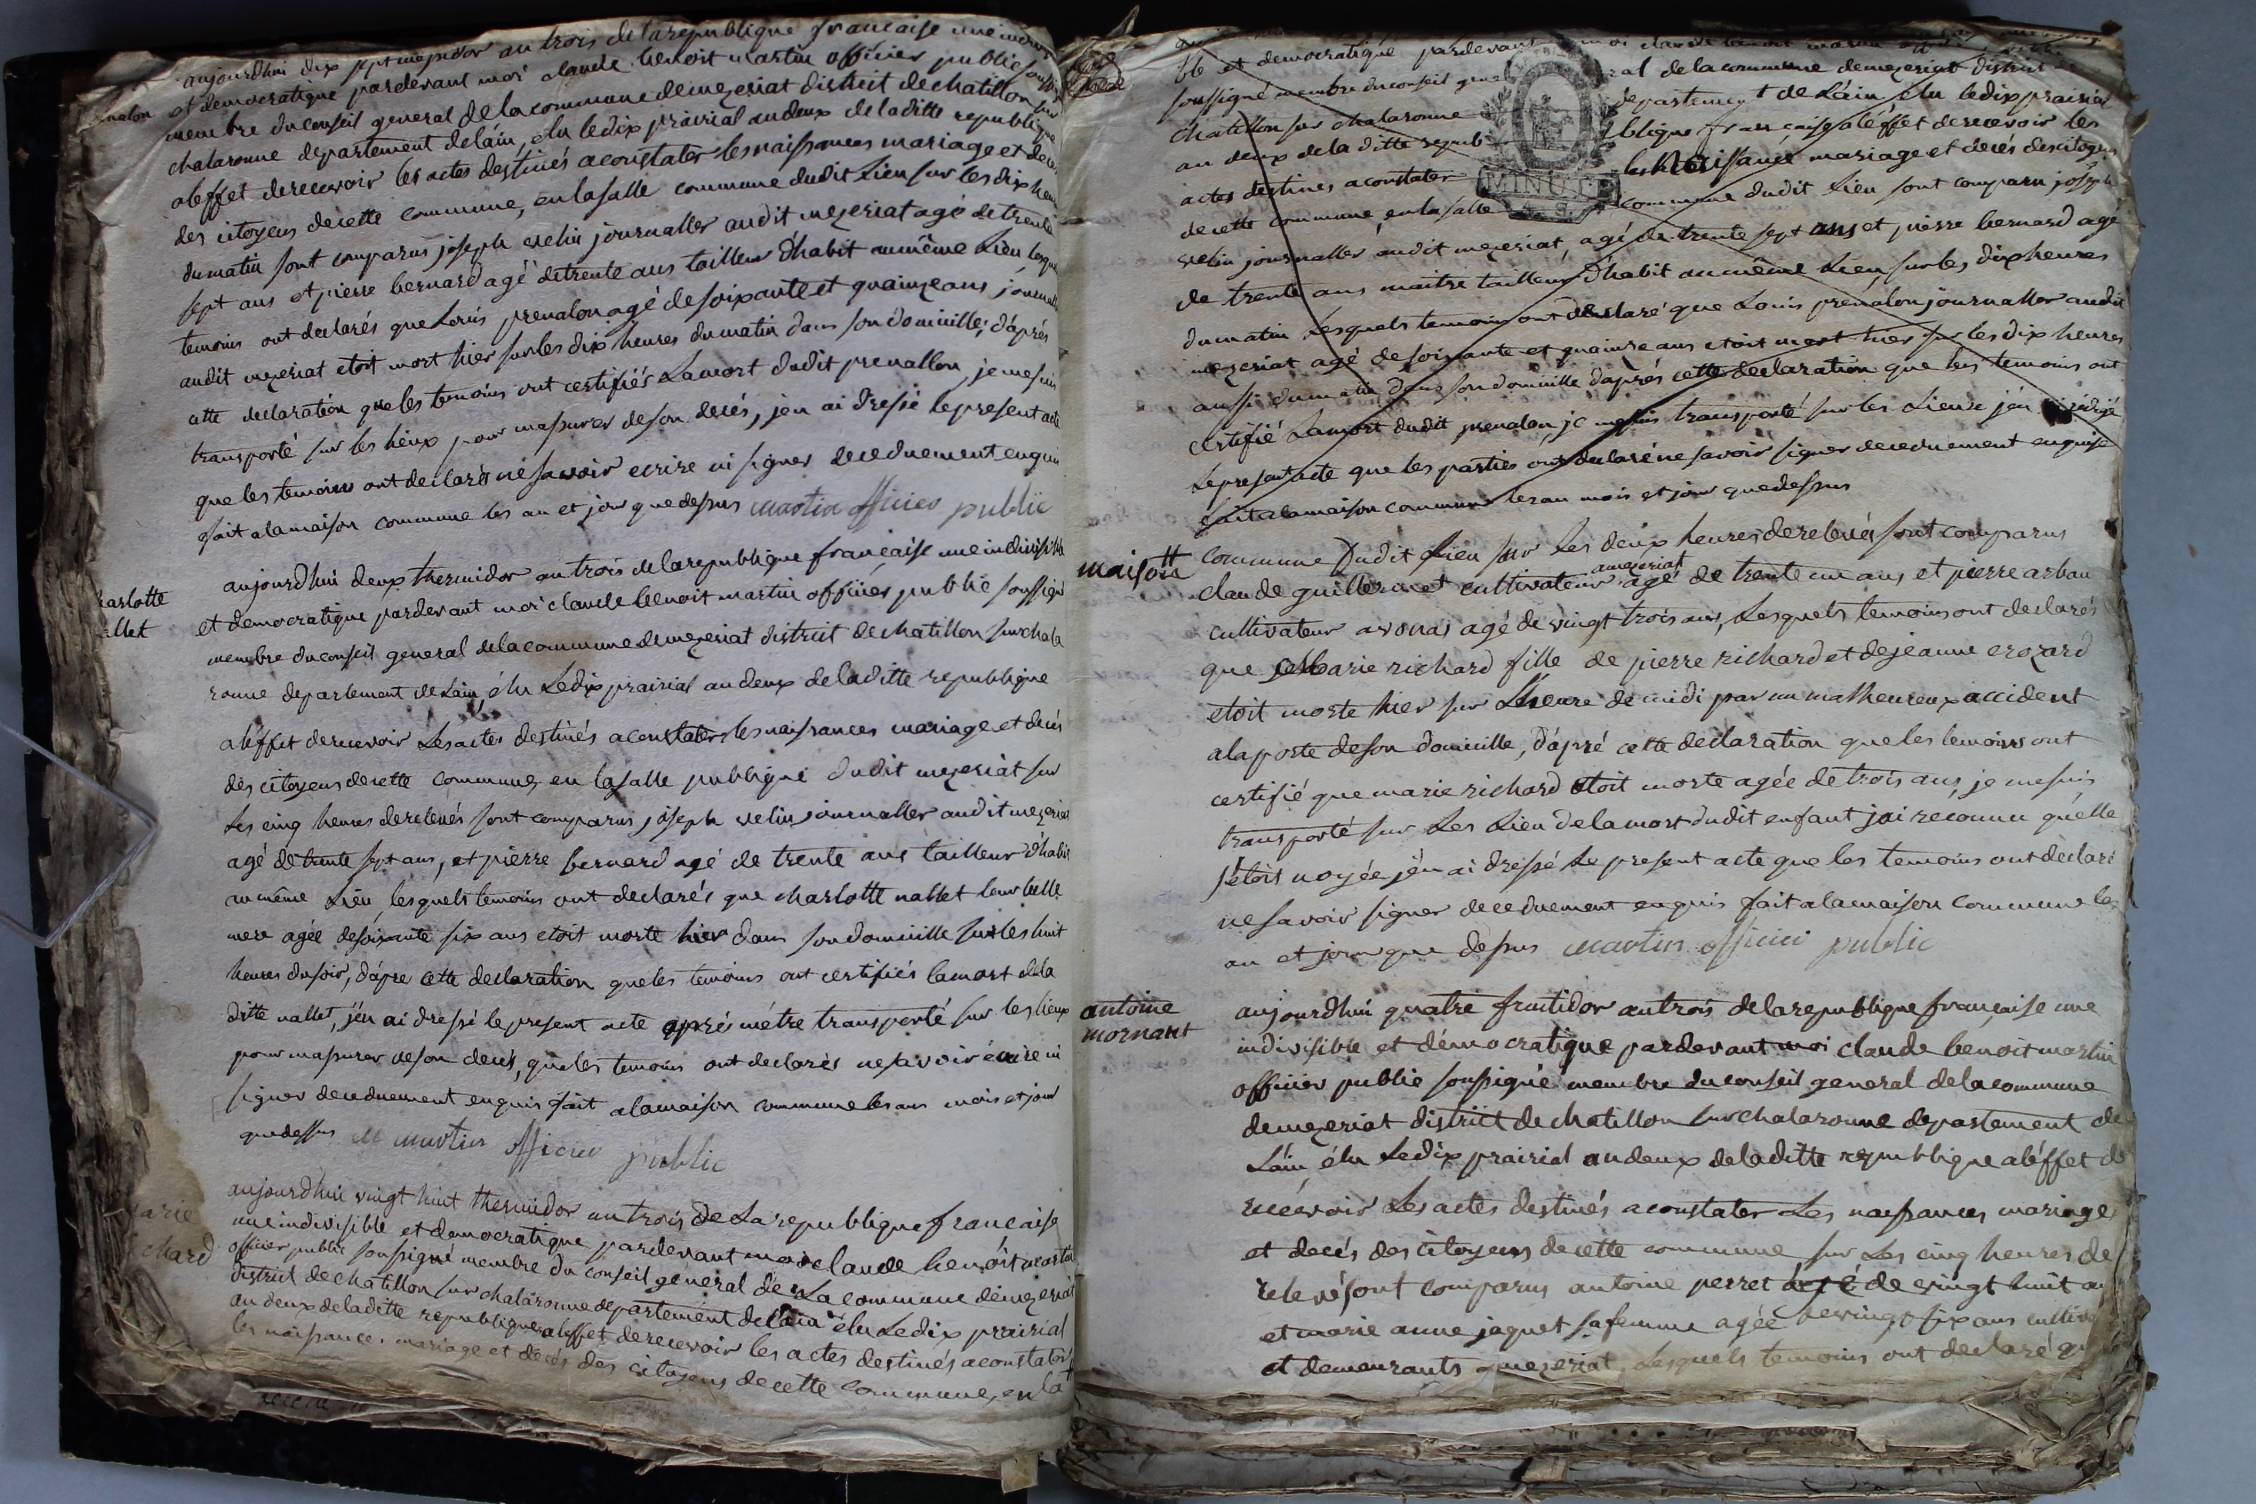 aujourdhui dix sept messidor an trois de la republique francaise une indivis
et democratique pardevant moi claude benoit martin officier public soussi
membre du conseil general de la commune demezeriat district de chatillon sur
chalaronne departement delain, élu ledix prairial andeux de laditte republique
aleffet derecevoir les actes destinés aconstater les naissances mariage et deces
des citoyens decette commune, en lasalle commune dudit Lieu sur les dix heures
dumatin sont comparus joseph velin journallier audit mezeriat agé de trente
sept ans et pierre bernard agé detrente ans tailleur d'habit aumême Lieu, lesquels
temoins ont declarés que Louis prenalon agé de soixante et quainze ans journallier
audit mezeriat etoit mort hier sur les dix heures dumatin dans son domicille; d'aprés
cette declaration que les temoins ont certifiés Lamort dudit prenallon, je mesuis
transporté sur les lieux pour massurer deson decés, jen ai dressé lepresent acte
que les temoins ont declarés ne savoir ecrire ni signer decednement enquis
fait alamaison commune les an et jour que dessus martin officier public
nalon
aujourdhui deux thermidor an trois de la republique française une indivisible
et democratique pardevant moi claude benoit martin officier public soussigné
membre du conseil general delacommune demezeriat district dechatillon sur chala
ronne departement de Lain, élu Ledix prairial andeux de laditte republique
aléffet derecevoir Les actes destinés aconstater les naissances mariage et decés
des citoyens decette commune, en lasalle publique dudit mezeriat sur
Les cinq heures derelevés sont comparus joseph velin journallier audit mezeriat
agé de trente sept ans, et pierre bernard agé de trente ans tailleur d'habit
au même Lieu, lesquels temoins ont declarés que charlotte nallet leur belle
mere agée desoixante six ans etoit morte hier dans son domicille sur les huit
heures dusoir, d'apre cette declaration queles temoins ont certifiés lamort dela
ditte nallet, jén ai dressé le present acte aprés métre transporté sur les lieux
pour massurer deson decés, que les temoins ont declarés nesavoir écrire ni
signer decednement enquis fait alamaison commune les ans mois et jour
quedessus martin officier public
harlotte
llet
aujourdhui vingt huit thermidor an trois de La republique francaise
une indivisible et democratique pardevant moi claude benoit martin
officier public soussigné membre du conseil general de La commune démezeriat
district de chatillon sur chalaronne departement de lain élu Le dix prairial
an deux de ladette republique aleffet de recevoir les actes destinés aconstater
les naissances mariage et decés des citoyens decette commune, en la
arie
chard
ble et democratique pardevant moi claude benoit martin
soussigné membre du conseil general de la commune demezeriat district de
chatillon sur chalaronne departement de Lain élu ledix prairial
an deux de la ditte republique francaise aléffet derecevoir les
actes destines aconstater les Naissance mariage et decés des citoyens
decette commune, en lasalle commune dudit Lieu sont comparu joseph
velin journallier audit mezeriat, agé de trente sept ans et pierre bernard agé
de trente ans maitre tailleur d'habit au même Lieu, sur les dix heures
du matin Lesquels temoins ont declaré que Louis prenalon journallier audit
mezeriat agé desoixante et quainze ans etoit mort hier sur les dix heures
aussi dumatin dans son domicille d'aprés cette declaration que les temoins ont
certifié Lamort dudit prenalon, je mesuis transporté sur les Lieu, jén ai redigé
Lepresent acte que les parties ont declaré ne savoir signer decednement enquise
fait alamaison commune les an mois et jour quedessus
MINUTE
maison commune Dudit Lieu sur Les deux heures derelevés sont comparus
claude guillermet cultivateur amezeriat agé de trente un ans et pierre arban
cultivateur avonas agé de vingt trois ans, Lesquels temoins ont declarés
que Marie richard fille de pierre richard et dejeanne crozard
etoit morte hier sur Lheure de midi par un malheureux accident
alaporte deson domicille, d'apré cette declaration que les temoins ont
certifié que marie richard etoit morte agée de trois ans, je mesuis
transporté sur Les Lieu delamort dudit enfant jai reconnu quélle
sétoit noyée jén ai dressé Le present acte que les temoins ont declaré
ne savoir signer decednement enquis fait alamaison commune les
an et jour que dessus martin officier public
antoine
mornant
aujourdhui quatre fructidor an trois delarepublique française une
indivisible et démocratique pardevant moi claude benoit martin
officier public soussigné membre du conseil general delacommune
demezeriat district de chatillon sur chalaronne departement de
Láin, élu Ledix prairial andeux deladitte republique aléffet de
recévoir Les actes destinés aconstater Les naissances mariage
et decés des citoyens decette commune sur Les cinq heures de
relevé sont comparus antoine perret agé de vingt huit an
et marie anne jaquet sa femme agée devingt six ans cultiv
et demeurants amezeriat, Lesquels temoins ont declaré qu